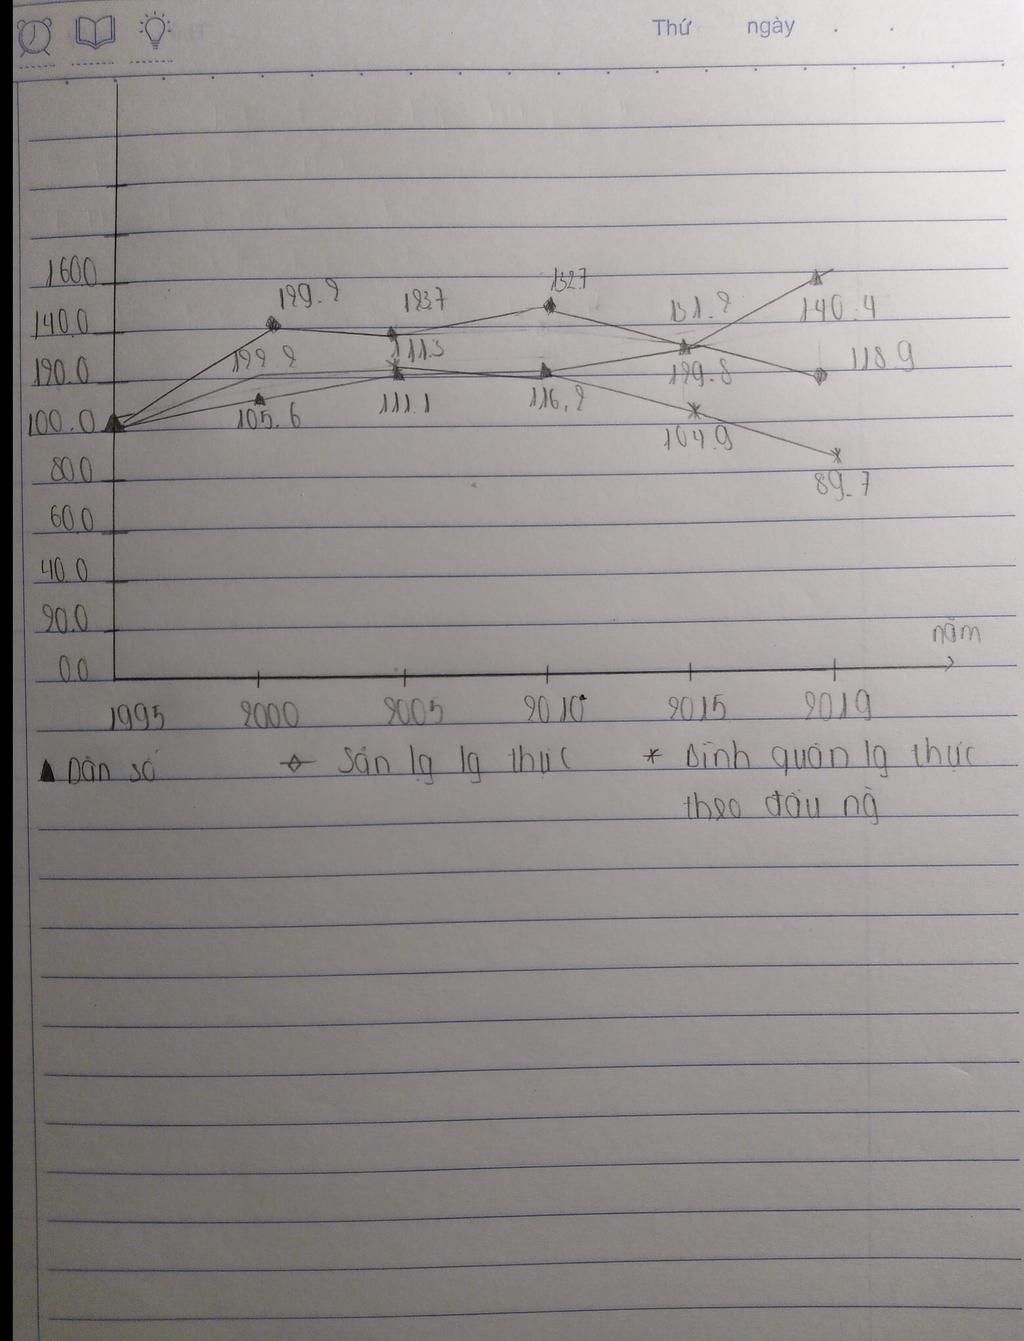 Thứ ngày . .
1600
129.2 1237 1327 131.2
140.0 140.4
122 2 111.3 118.9
120.0 129.8
100.0 105.6 111.1 116,2
104.9
80.0 89.7
60.0
40.0
20.0
năm
0.0
1995 2000 2005 2010 2015 2019
Dân số Sản lg lg thực Bình quân lg thực
theo đầu ng